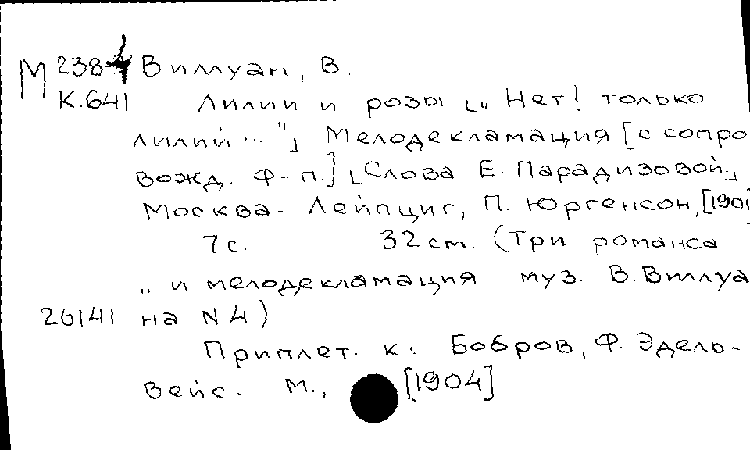 М 238-4 Виллуан, В.
К.641 Лилии и розы [„Нет! только
лилий..."] Мелодекламация [с сопро
вожд. ф-п.] [Слова Е. Парадизовой]
Москва - Лейпциг, П. Юргенсон, [190
7 с. 32 cm. (Три романса
„ и мелодекламация муз. В. Виллуа
26141 на N 4)
Приплет. к: Бобров, Ф. Эдель-
вейс. М., [1904]